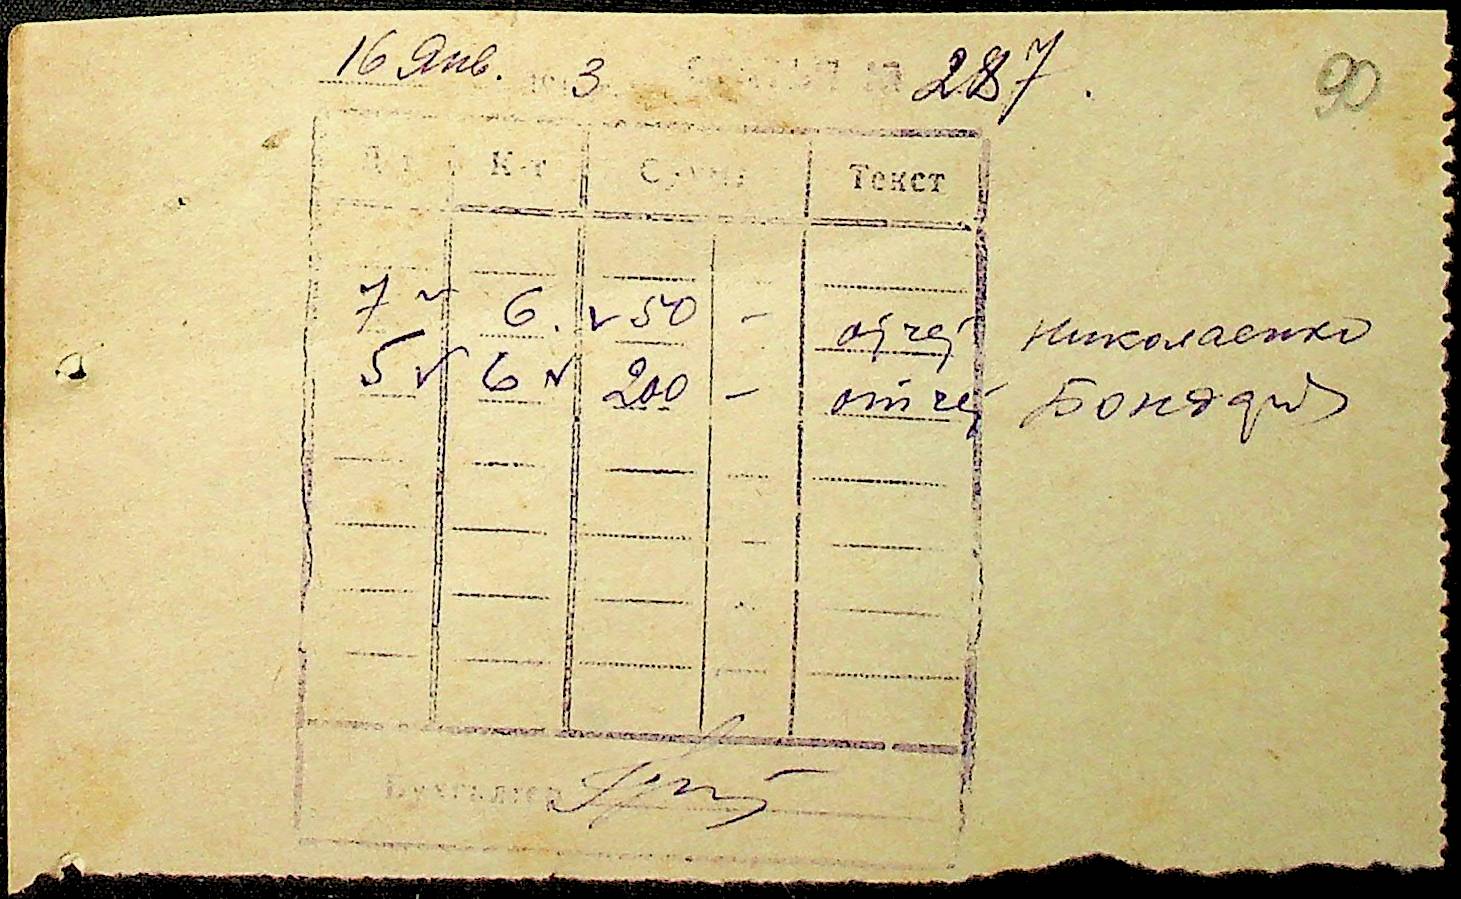 16 Янв. 3 287.
90
Д-т К-т Сумма Текст
7 6. 50 - отчет Николаенко
5 6 200 - отчет
Бухгалтер